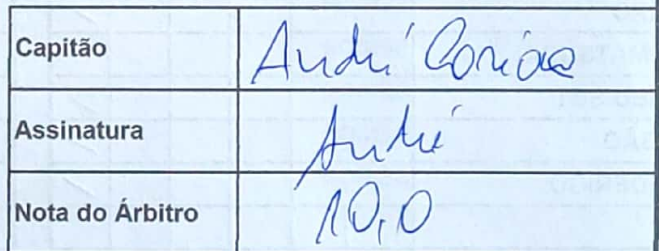 Capitão André
Assinatura André
Nota do Árbitro 10,0